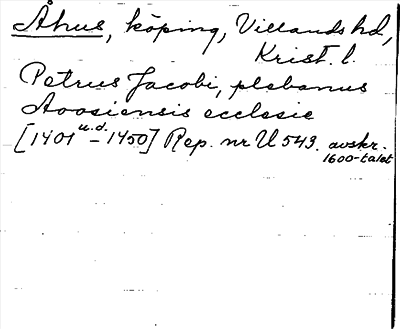 Åhus, köping, Villands hd,
Krist. l.
Petrus Jacobi, plebanus
Aoosiensis ecclesie
[1401 u.d. - 1450] Rep. nr U 543. avskr.
1600-talet